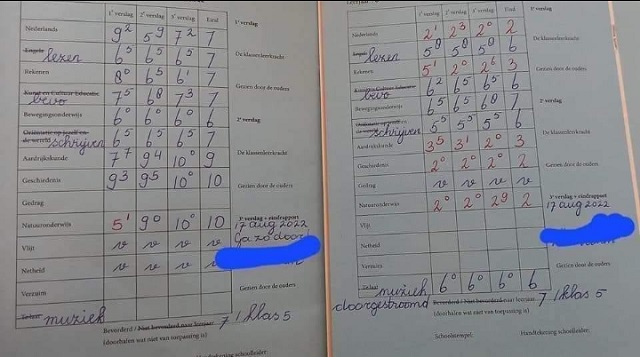 1e verslag 2e verslag 3e verslag Eind 1e verslag
Nederlands 9² 5⁹ 7² 7
Engels lezen 6⁵ 6⁵ 6⁵ 7 De klassenleerkracht
Rekenen 8⁰ 6⁵ 6¹ 7
Kunst en Cultuur Educatie bevo 7⁵ 6⁸ 7³ 7 Gezien door de ouders
Bewegingsonderwijs 6⁰ 6⁰ 6⁰ 6
2e verslag
schrijven 6⁵ 6⁵ 6⁵ 7
Aardrijkskunde 7⁷ 9⁴ 10⁰ 9 De klassenleerkracht
Geschiedenis 9³ 9⁵ 10⁰ 10 Gezien door de ouders
Gedrag
3e verslag + eindrapport
Natuuronderwijs 5¹ 9⁰ 10⁰ 10 17 aug 2022
Vlijt v v v v Ga zo door!
Netheid v v v
Gezien door de ouders
Verzuim
muziek
Bevorderd / Niet bevorderd naar leerjaar: 7 / klas 5
(doorhalen wat niet van toepassing is)
1e verslag 2e verslag 3e verslag Eind 1e verslag
Nederlands 2¹ 2³ 2⁰ 2
Engels lezen 5⁸ 5⁸ 5⁸ 6 De klassenleerkracht
Rekenen 5¹ 2⁰ 2⁶ 3
Kunst en Cultuur Educatie bevo 6² 6⁵ 6⁵ 6 Gezien door de ouders
Bewegingsonderwijs 6⁵ 6⁵ 6⁸ 7
2e verslag
schrijven 5⁵ 5⁵ 5⁵ 6
Aardrijkskunde 3⁵ 3¹ 2⁰ 3 De klassenleerkracht
Geschiedenis 2⁰ 2⁰ 2⁰ 2
Gedrag v v v v Gezien door de ouders
Natuuronderwijs 2⁰ 2⁰ 2⁹ 2 3e verslag + eindrapport
17 aug 2022
Vlijt
Netheid
Verzuim Gezien door de ouders
muziek 6⁰ 6⁰ 6⁰ 6
doorgestroomd Bevorderd / Niet bevorderd naar leerjaar: 7 / klas 5
(doorhalen wat niet van toepassing is)
Schoolstempel: Handtekening schoolleider: